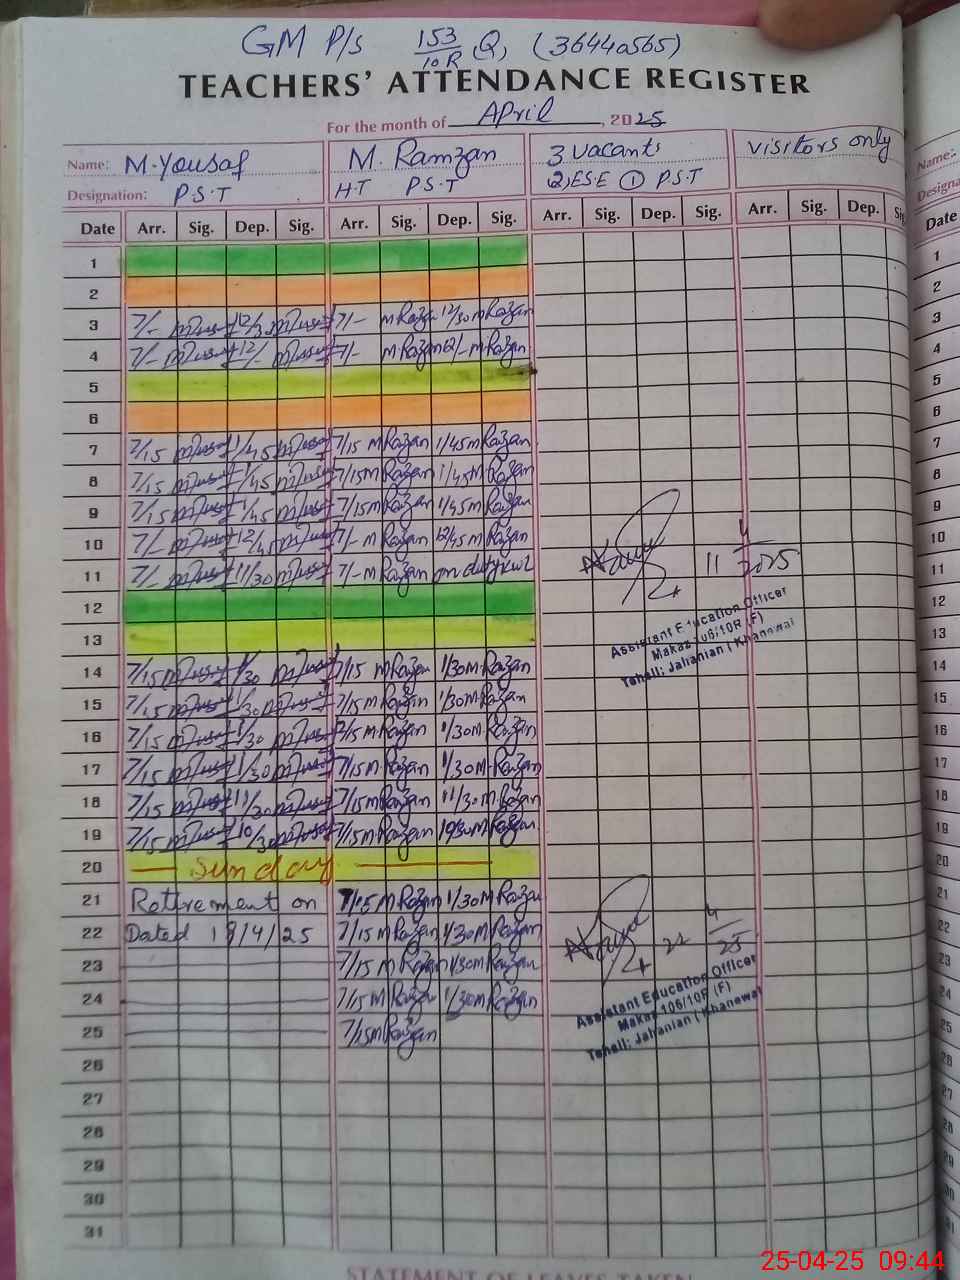 GM P/s 153/10R Q, (3644o565)
TEACHERS' ATTENDANCE REGISTER
For the month of APril, 2025
Name: M. Yousaf M. Ramzan 3 vacants visitors only
Designation: P.S.T H.T P.S.T 2, E.S.E ① P.S.T
Date Arr. Sig. Dep. Sig. Arr. Sig. Dep. Sig. Arr. Sig. Dep. Sig. Arr. Sig. Dep. Sig.
1
2
3 7/- 12/30 7/- M Razan 12/30 M Razan
4 7/- 12/- 7/- M Razan 12/- M Razan
5
6
7 7/15 1/45 7/15 M Razan 1/45 M Razan
8 7/15 1/45 7/15 M Razan 1/45 M Razan
9 7/15 1/45 7/15 M Razan 1/45 M Razan
10 7/- 12/45 7/- M Razan 12/45 M Razan
11 7/- 11/30 7/- M Razan on duty 11 4/2025
12
Assistant Education Officer
13
Makaz 106/10R (F)
Tehsil; Jahanian (Khanewal
14 7/15 1/30 7/15 M Razan 1/30 M Razan
15 7/15 1/30 7/15 M Razan 1/30 M Razan
16 7/15 1/30 7/15 M Razan 1/30 M Razan
17 7/15 1/30 7/15 M Razan 1/30 M Razan
18 7/15 11/30 7/15 M Razan 11/30 M Razan
19 7/15 10/30 7/15 M Razan 10/30 M Razan
20 Sunday
21 Retirement on 7/15 M Razan 1/30 M Razan
22 Dated 18/4/25 7/15 M Razan 1/30 M Razan 22 4/25
23 7/15 M Razan 1/30 M Razan
Assistant Education Officer
24 7/15 M Razan 1/30 M Razan
Makaz 106/10R (F)
25 7/15 M Razan
Tehsil; Jahanian (Khanewal
26
27
28
29
30
31
STATEMENT OF LEAVES TAKEN
25-04-25 09:44